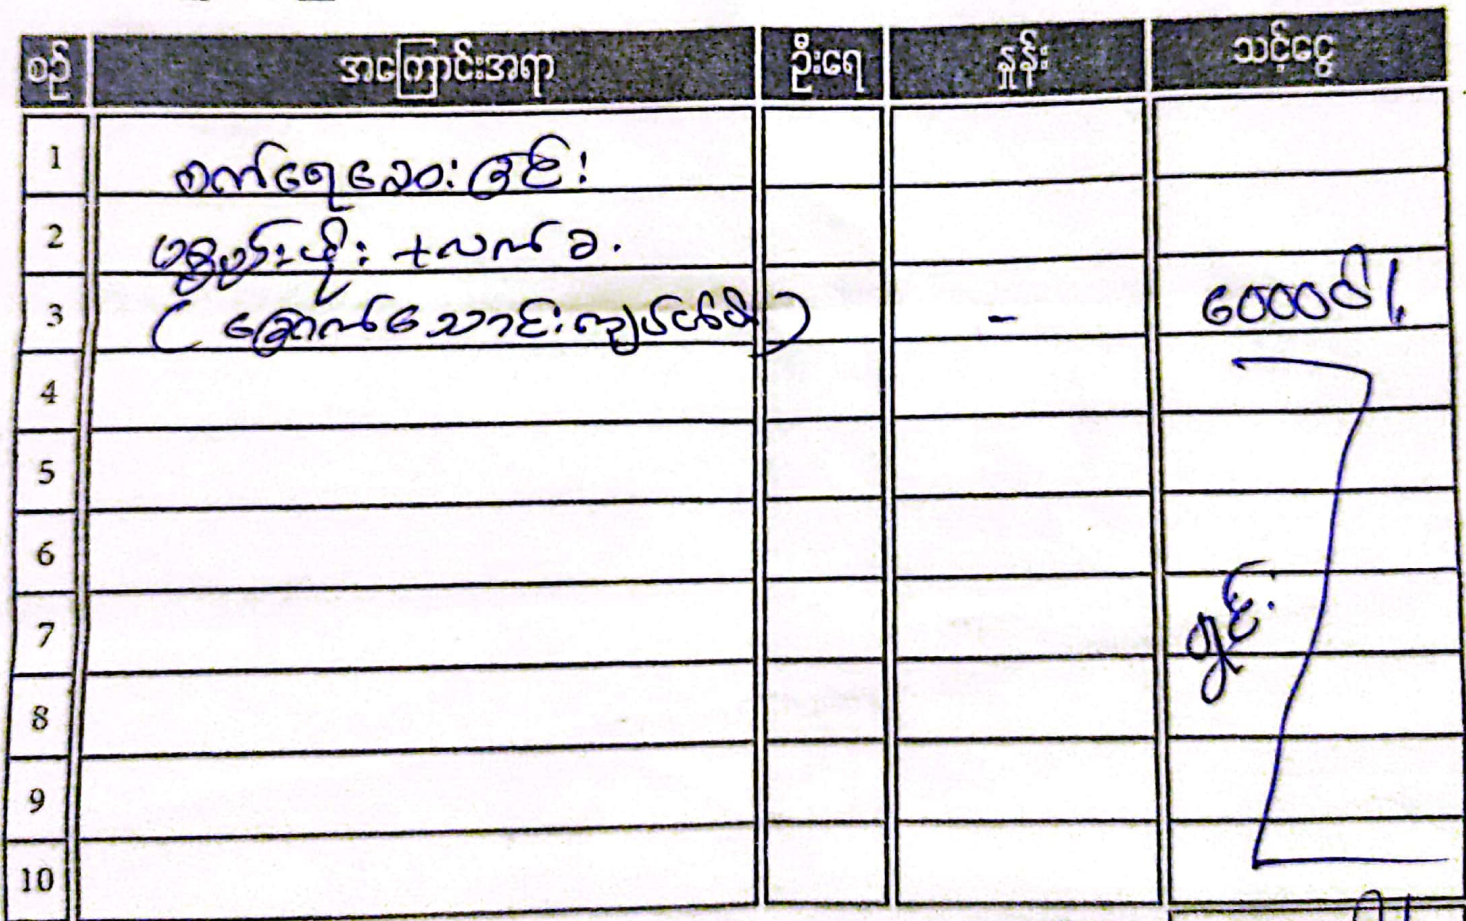 စဉ် အကြောင်းအရာ ဦးရေ နှုန်း သင့်ငွေ
1 စက်ရေဆေးခြင်း
2 ပစ္စည်းဖိုး + လက်ခ.
3 (ခြောက်သောင်းကျပ်တိတိ) - ၆၀၀၀၀ိ/.
4
5
6
7 ရှင်း
8
9
10